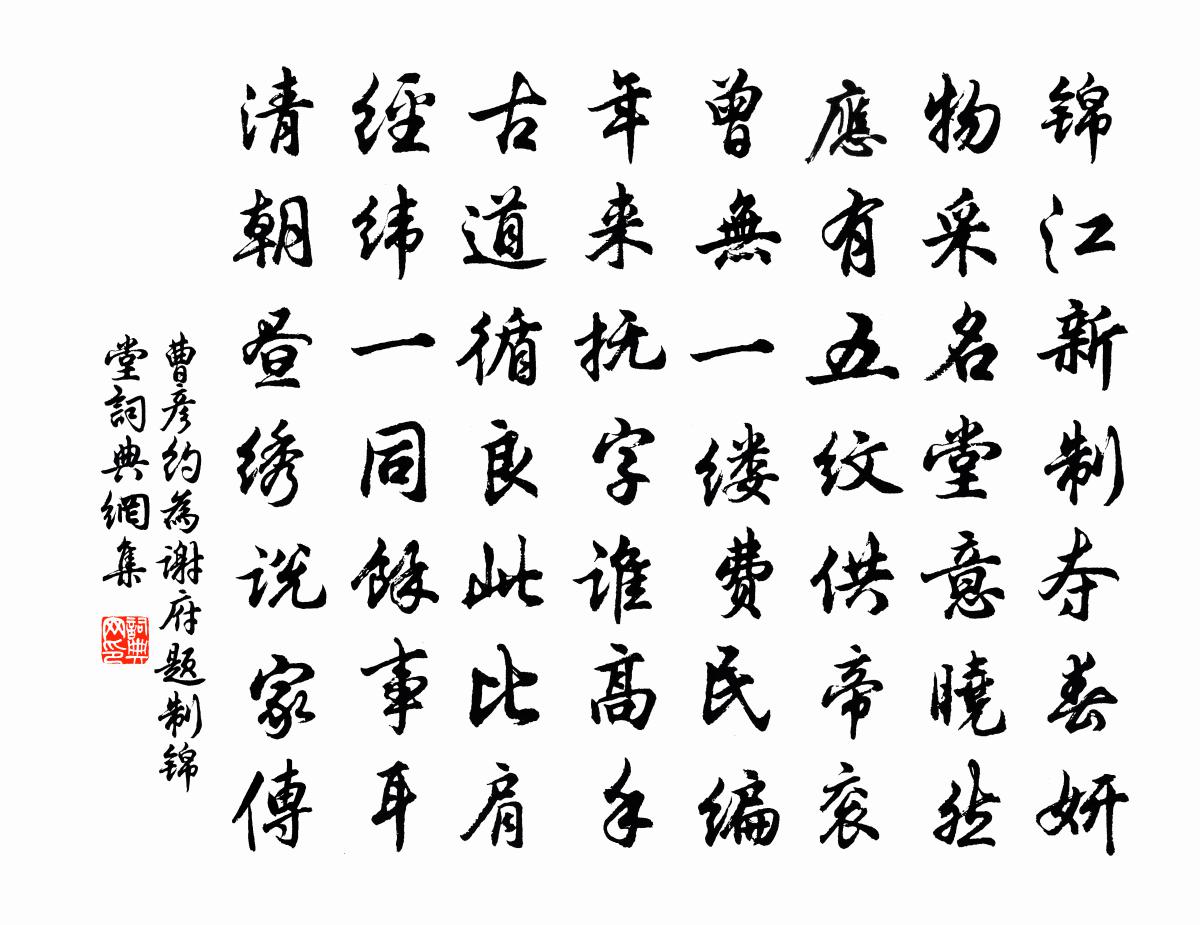 锦江新制夺春妍
物采名堂意曉然
應有五纹供帝衮
曾無一缕費民编
年来抚字谁高手
古道循良此比肩
經纬一同餘事耳
清朝昼绣说家傳
曹彦约為谢府题制锦
堂詞典網集
詞典
网印